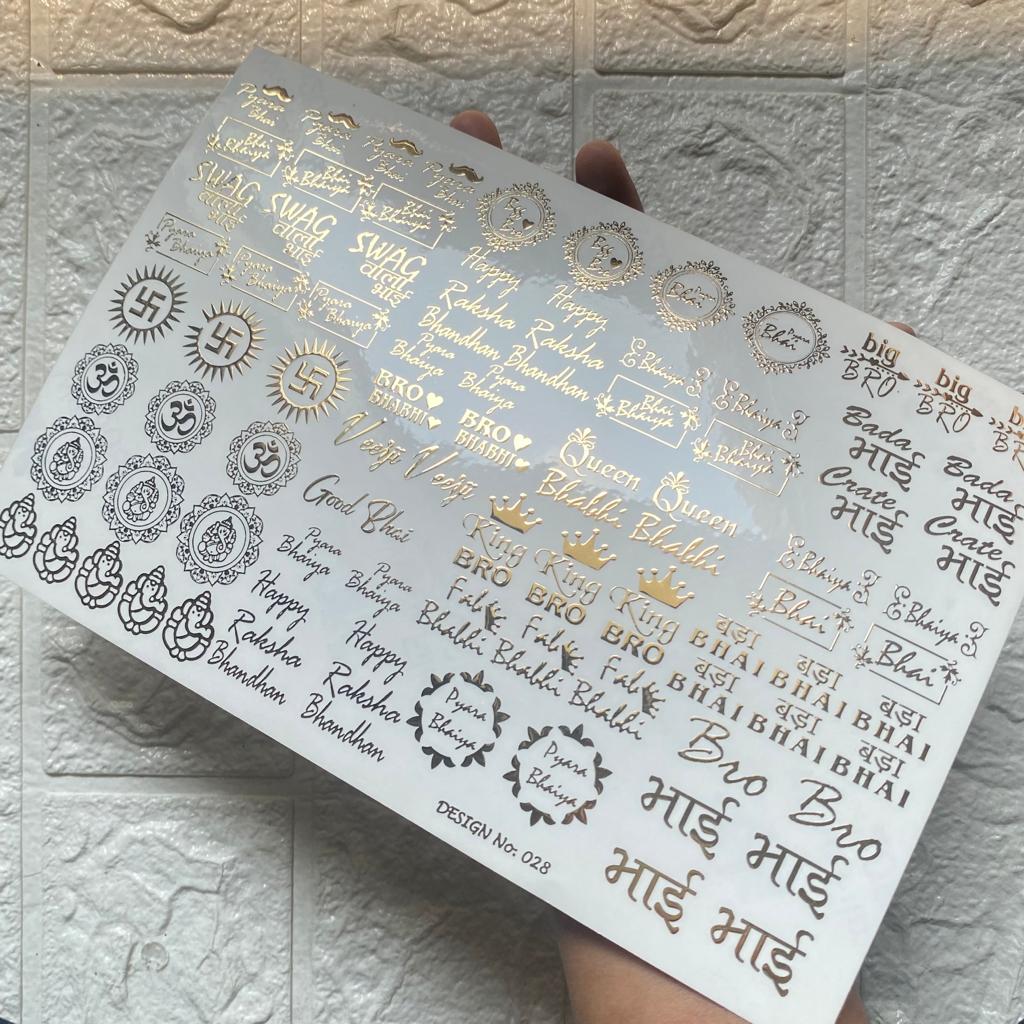 Pyara
Bhai
Pyara
Bhai
Pyara
Bhai
Pyara
Bhai
Bhai
Bhaiya
Bhai
Bhaiya
Bhai
Bhaiya
SWAG
वाला
भाई
SWAG
वाला
भाई
SWAG
वाला
भाई
Pyara
Bhaiya
Pyara
Bhaiya
Pyara
Bhaiya
Bhai
Pyara
Bhai
big
BRO
big
BRO
Happy
Raksha
Bhandhan
Happy
Raksha
Bhandhan
Pyara
Bhaiya
Pyara
Bhaiya
Bhaiya
Bhaiya
Bhai
Bhaiya
Bhai
Bhaiya
Bada
भाई
Bada
भाई
Crate
भाई
Crate
भाई
BRO
BHABHI
BRO
BHABHI
Queen
Bhabhi
Queen
Bhabhi
ॐ
ॐ
ॐ
Veerji
Veerji
Good Bhai
King
BRO
King
BRO
King
BRO
Bhaiya
Bhaiya
Bhai
Bhai
Pyara
Bhaiya
Pyara
Bhaiya
Fab
Bhabhi
Fab
Bhabhi
Fab
Bhabhi
बड़ा
BHAI
बड़ा
BHAI
बड़ा
BHAI
बड़ा
BHAI
बड़ा
BHAI
Happy
Raksha
Bhandhan
Happy
Raksha
Bhandhan
Pyara
Bhaiya
Pyara
Bhaiya
Bro
Bro
भाई
भाई
भाई
भाई
DESIGN No. 028